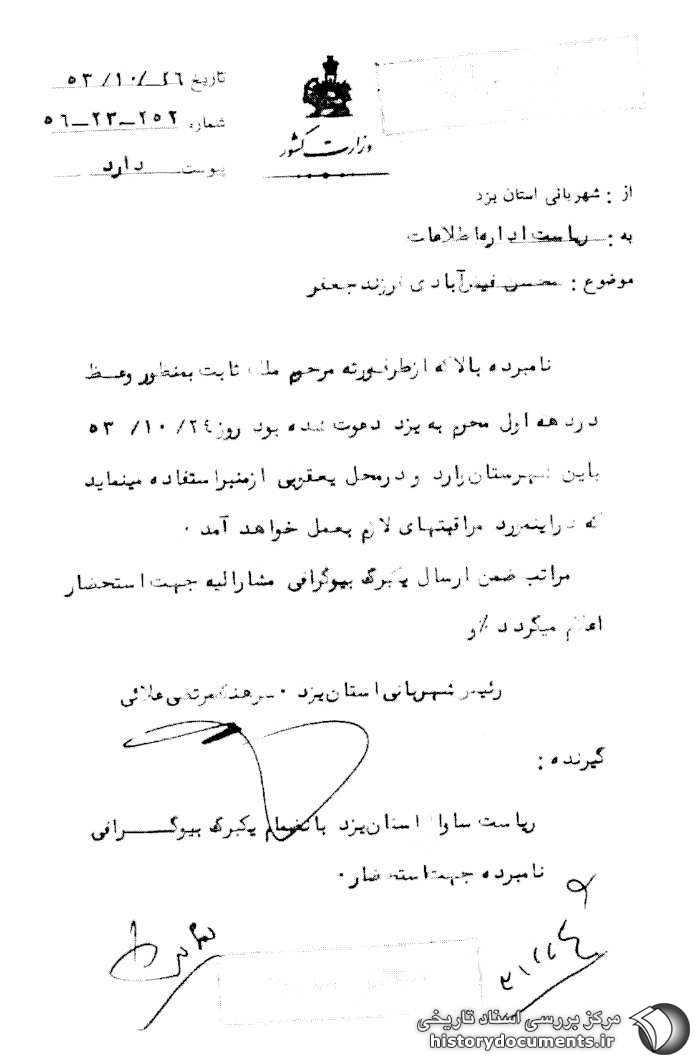 تاریخ ۵۳/۱۰/۲۶
شماره ۲۵۲-۲۳-۵۶
پیوست دارد
وزارت کشور
از : شهربانی استان یزد
به : ریاست اداره اطلاعات
موضوع : محسن فیض‌آبادی فرزند جعفر
نامبرده بالا که از طرف ورثه مرحوم ملک ثابت بمنظور وعظ
در دهه اول محرم به یزد دعوت شده بود روز ۲٤/ ۱۰/ ۵۳
باین شهرستان وارد و در محل یعقوبی از منبر استفاده مینماید
که در اینمورد مراقبتهای لازم بعمل خواهد آمد ۰
مراتب ضمن ارسال یکبرگ بیوگرافی مشارالیه جهت استحضار
اعلام میگردد ٪و
رئیس شهربانی استان یزد ۰ سرهنگ مرتضی علائی
گیرنده :
ریاست ساواک استان یزد بانضمام یکبرگ بیوگـــرافی
نامبرده جهت استحضار ۰
مرکز بررسی اسناد تاریخی
historydocuments.ir